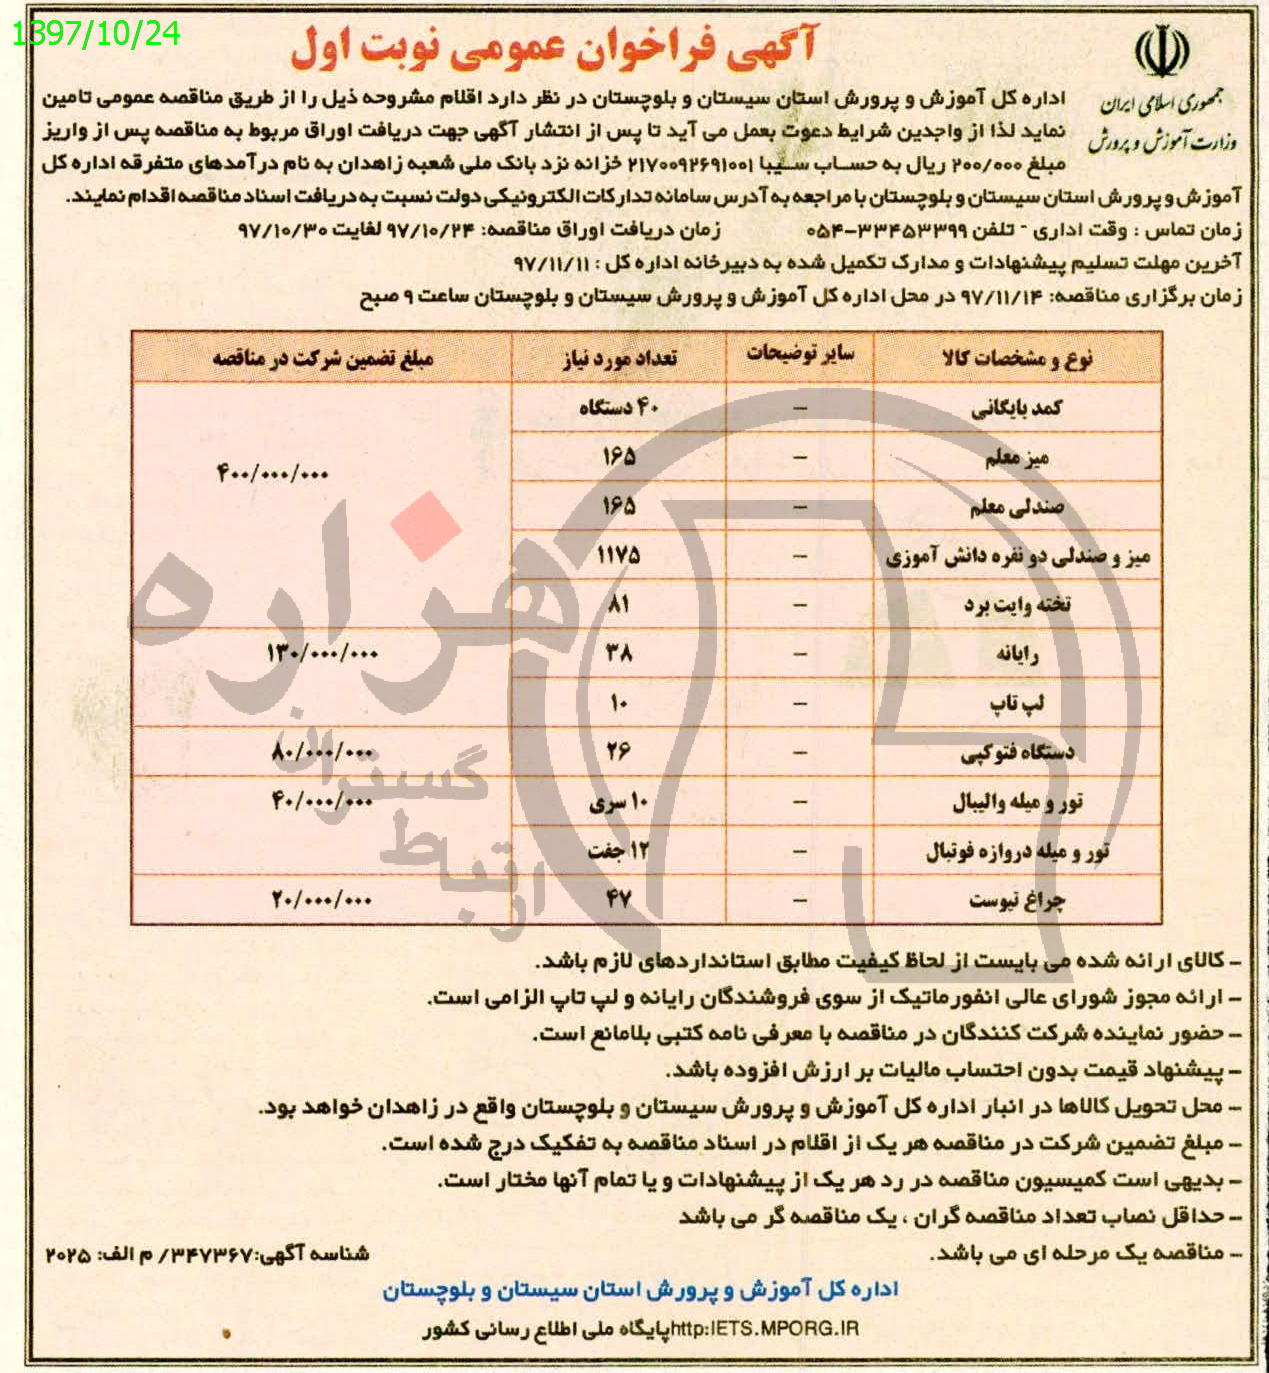 1397/10/24
آگهی فراخوان عمومی نوبت اول
جمهوری اسلامی ایران
وزارت آموزش و پرورش
اداره کل آموزش و پرورش استان سیستان و بلوچستان در نظر دارد اقلام مشروحه ذیل را از طریق مناقصه عمومی تامین
نماید لذا از واجدین شرایط دعوت بعمل می آید تا پس از انتشار آگهی جهت دریافت اوراق مربوط به مناقصه پس از واریز
مبلغ ۲۰۰/۰۰۰ ریال به حساب سیبا ۲۱۷۰۰۹۲۶۹۱۰۰۱ خزانه نزد بانک ملی شعبه زاهدان به نام درآمدهای متفرقه اداره کل
آموزش و پرورش استان سیستان و بلوچستان با مراجعه به آدرس سامانه تدارکات الکترونیکی دولت نسبت به دریافت اسناد مناقصه اقدام نمایند.
زمان تماس : وقت اداری - تلفن ۳۳۴۵۳۳۹۹-۰۵۴ زمان دریافت اوراق مناقصه: ۹۷/۱۰/۲۴ لغایت ۹۷/۱۰/۳۰
آخرین مهلت تسلیم پیشنهادات و مدارک تکمیل شده به دبیرخانه اداره کل : ۹۷/۱۱/۱۱
زمان برگزاری مناقصه: ۹۷/۱۱/۱۴ در محل اداره کل آموزش و پرورش سیستان و بلوچستان ساعت ۹ صبح
نوع و مشخصات کالا سایر توضیحات تعداد مورد نیاز مبلغ تضمین شرکت در مناقصه
کمد بایگانی – ۴۰ دستگاه
میز معلم – ۱۶۵ ۴۰۰/۰۰۰/۰۰۰
صندلی معلم – ۱۶۵
میز و صندلی دو نفره دانش آموزی – ۱۱۷۵
تخته وایت برد – ۸۱
رایانه – ۳۸ ۱۳۰/۰۰۰/۰۰۰
لپ تاپ – ۱۰
دستگاه فتوکپی – ۲۶ ۸۰/۰۰۰/۰۰۰
تور و میله والیبال – ۱۰ سری ۴۰/۰۰۰/۰۰۰
تور و میله دروازه فوتبال – ۱۲ جفت
چراغ تیوست – ۴۷ ۲۰/۰۰۰/۰۰۰
هزاره
گستران
ارتباط
– کالای ارائه شده می بایست از لحاظ کیفیت مطابق استانداردهای لازم باشد.
– ارائه مجوز شورای عالی انفورماتیک از سوی فروشندگان رایانه و لپ تاپ الزامی است.
– حضور نماینده شرکت کنندگان در مناقصه با معرفی نامه کتبی بلامانع است.
– پیشنهاد قیمت بدون احتساب مالیات بر ارزش افزوده باشد.
– محل تحویل کالاها در انبار اداره کل آموزش و پرورش سیستان و بلوچستان واقع در زاهدان خواهد بود.
– مبلغ تضمین شرکت در مناقصه هر یک از اقلام در اسناد مناقصه به تفکیک درج شده است.
– بدیهی است کمیسیون مناقصه در رد هر یک از پیشنهادات و یا تمام آنها مختار است.
– حداقل نصاب تعداد مناقصه گران ، یک مناقصه گر می باشد
– مناقصه یک مرحله ای می باشد. شناسه آگهی:۳۴۷۳۶۷/ م الف: ۲۰۲۵
اداره کل آموزش و پرورش استان سیستان و بلوچستان
http:IETS.MPORG.IRپایگاه ملی اطلاع رسانی کشور